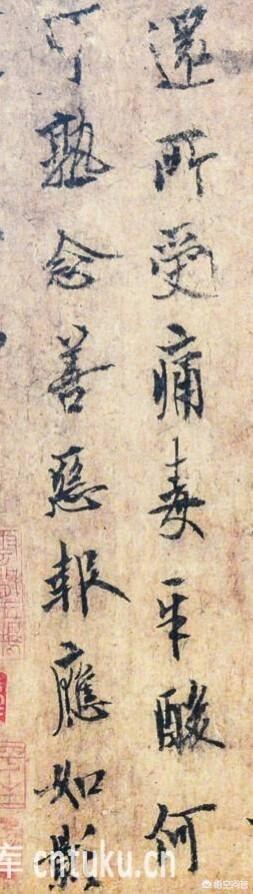 還所受痛毒辛酸何
可熟念善惡報應如影
库 cntuku.cn
悟空问答